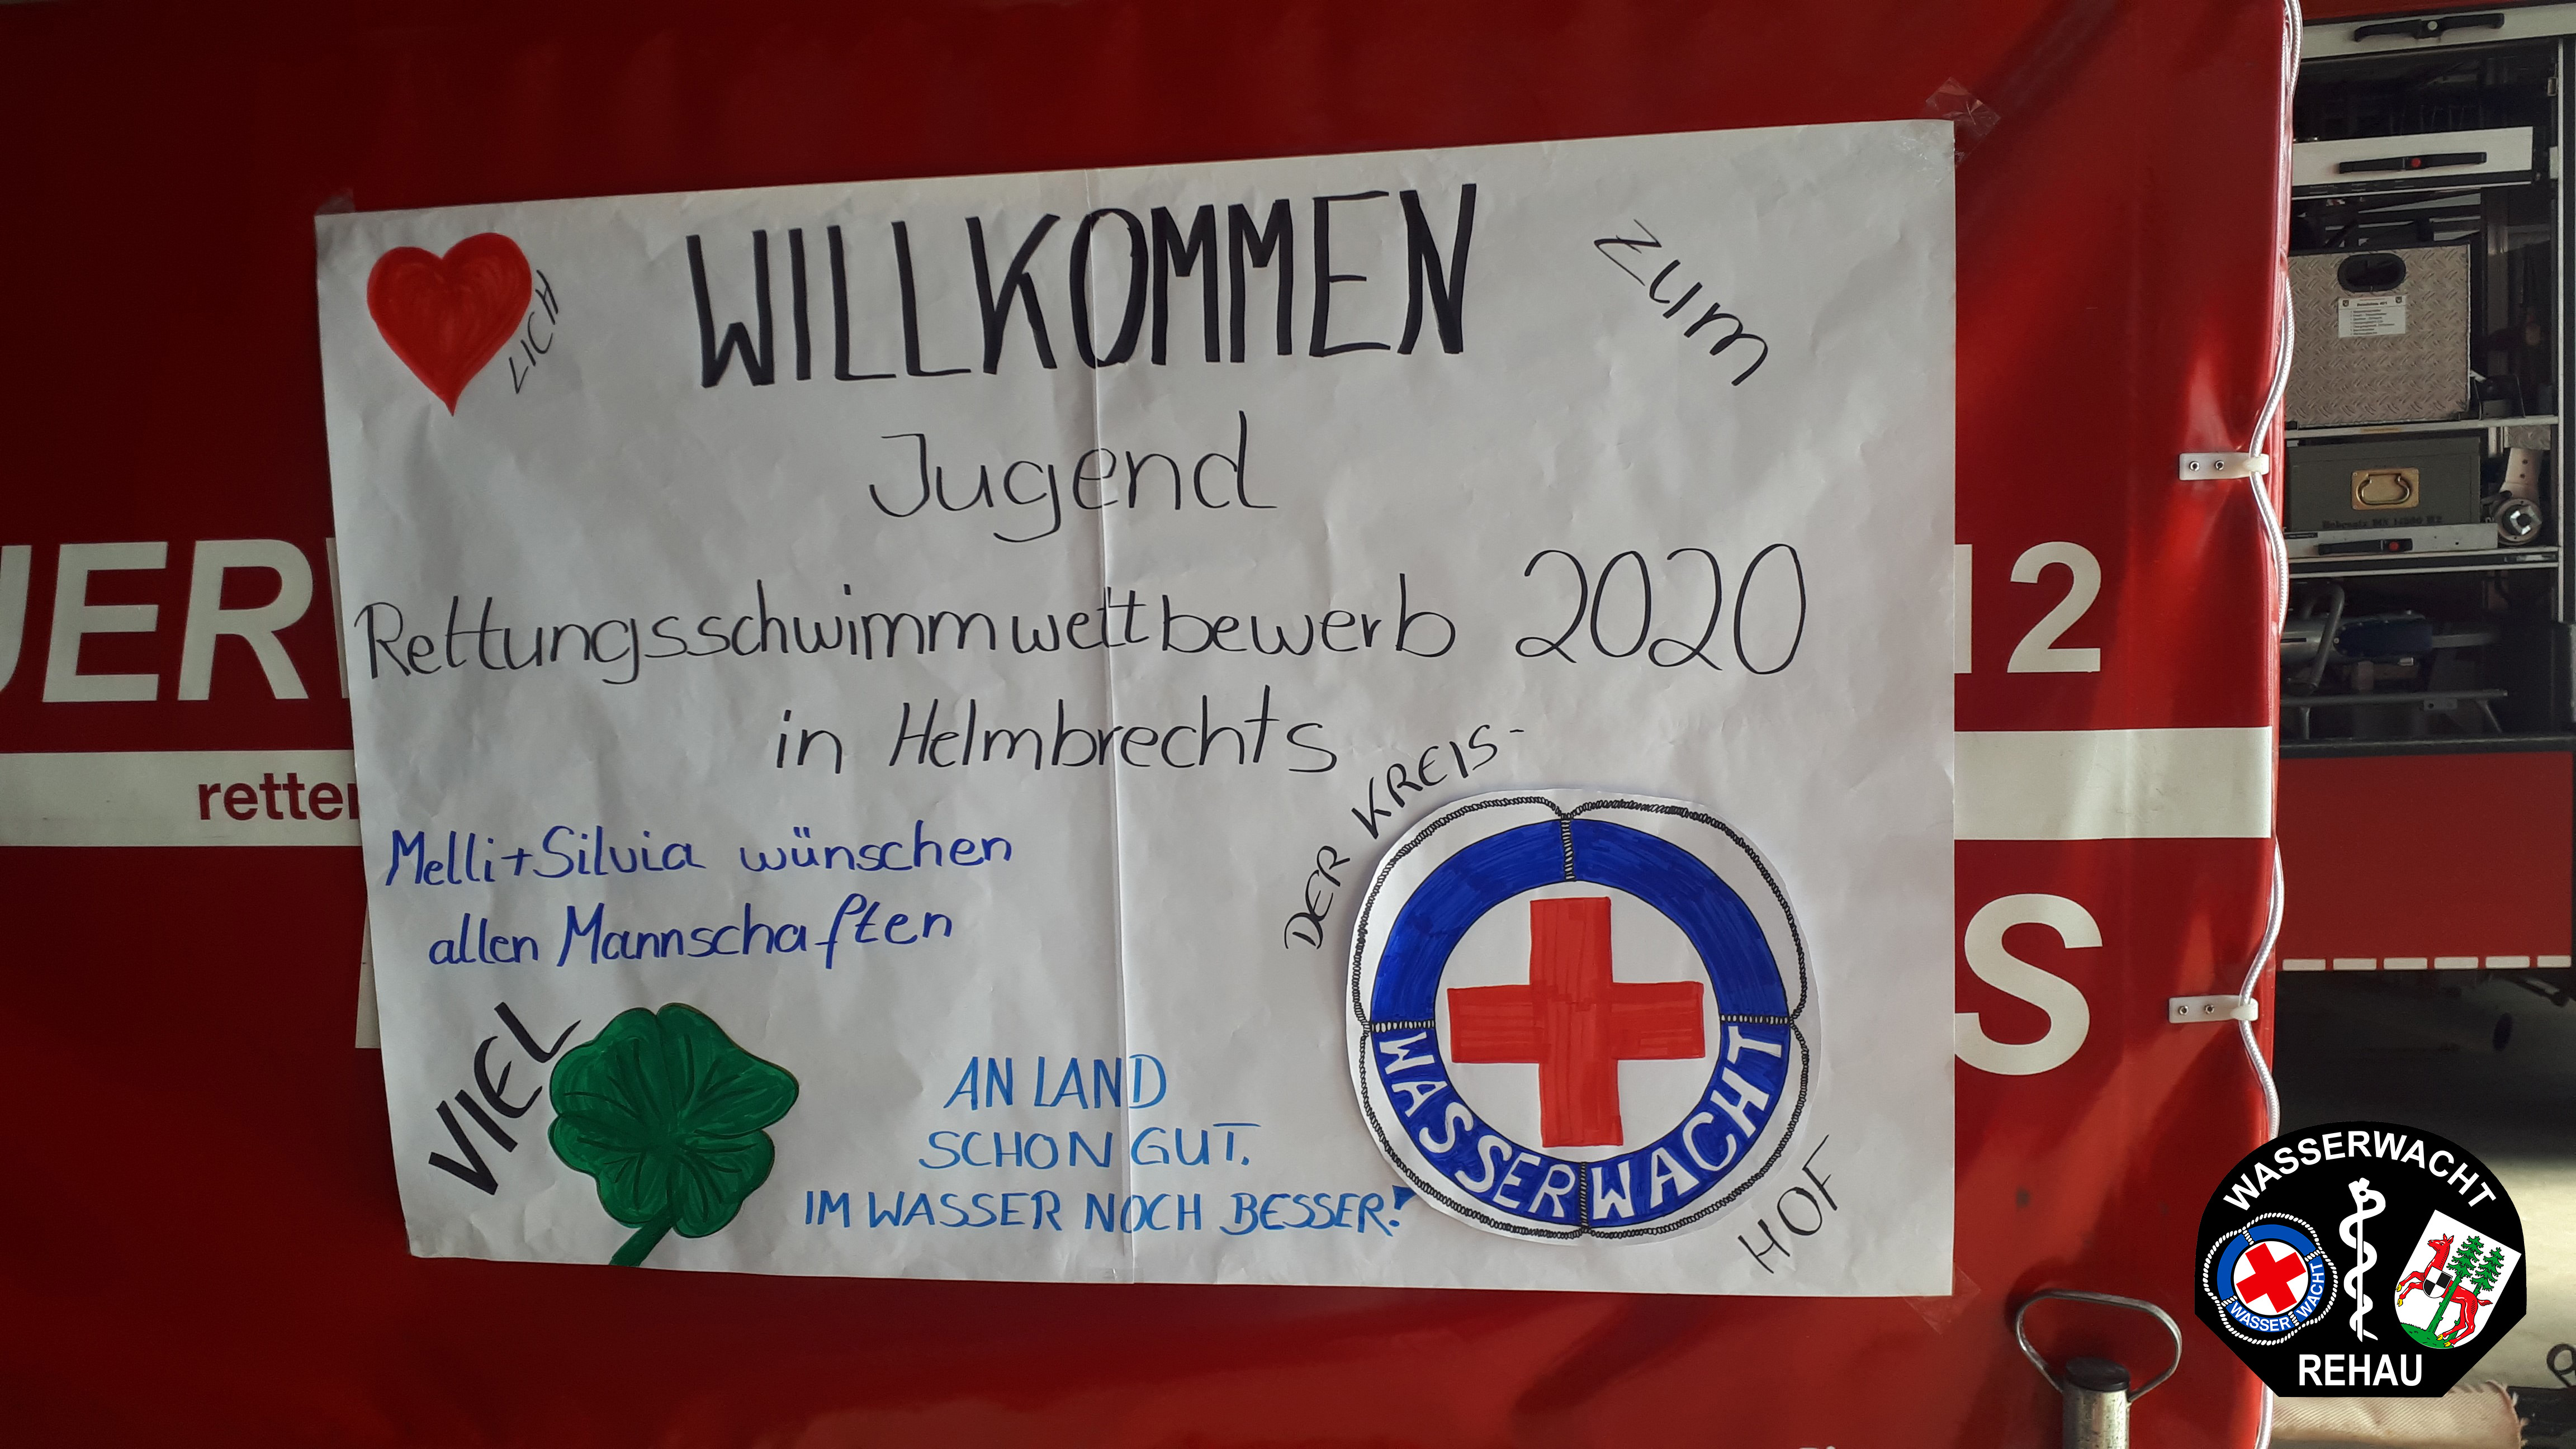 LICH
WILLKOMMEN
ZUM
Jugend
Rettungsschwimmwettbewerb 2020
in Helmbrechts
DER KREIS-
WASSERWACHT
HOF
Melli+Silvia wünschen
allen Mannschaften
VIEL
AN LAND
SCHON GUT.
IM WASSER NOCH BESSER!
UER
12
rette
S
WASSERWACHT
WASSER WACHT
REHAU